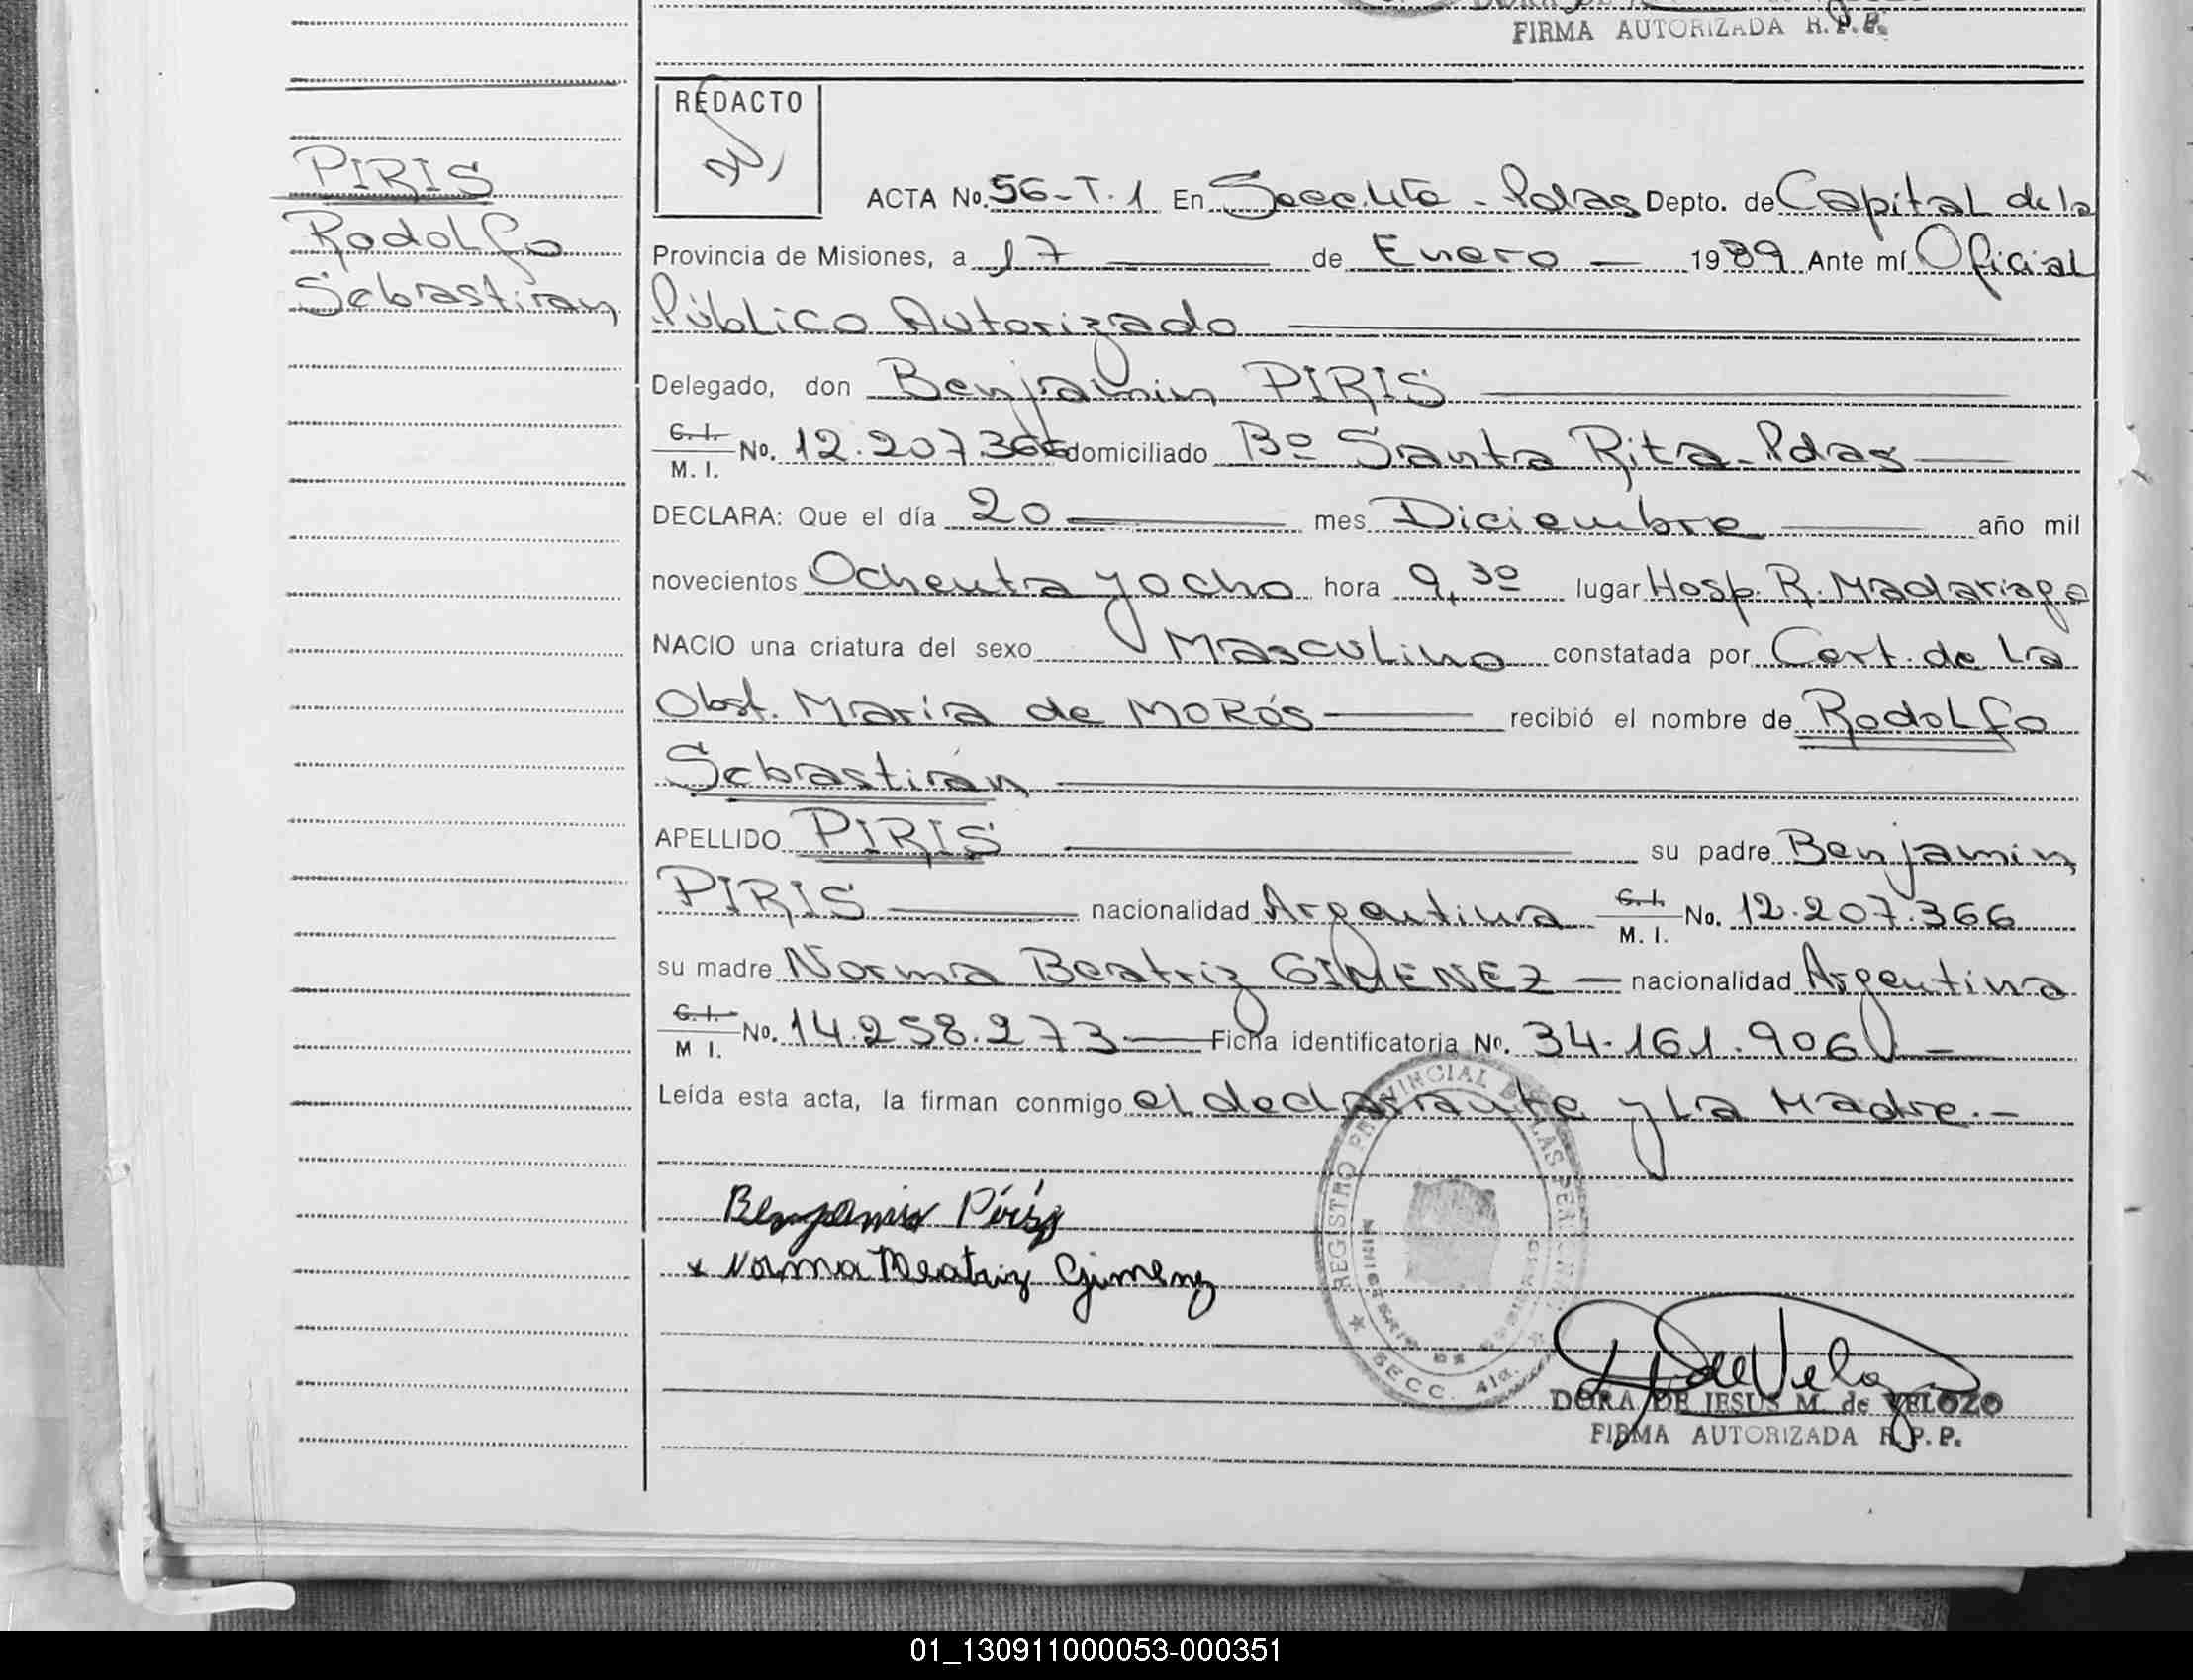 FIRMA AUTORIZADA R.P.P.
REDACTO
PIRIS
Rodolfo
Sebastian
ACTA No. 56-T.1 En Secc. 41a - Pdas Depto. de Capital de la
Provincia de Misiones, a 17 de Enero 1989 Ante mí Oficial
Público Autorizado
Delegado, don Benjamin PIRIS
C. I. M. I. No. 12.207.366 domiciliado Bº Santa Rita-Pdas
DECLARA: Que el día 20 mes Diciembre año mil
novecientos Ochenta y ocho hora 9,30 lugar Hosp. R. Madariaga
NACIO una criatura del sexo Masculino constatada por Cert. de la
Obst. María de MORÓS recibió el nombre de Rodolfo
Sebastián
APELLIDO PIRIS su padre Benjamin
PIRIS nacionalidad Argentina C. I. M. I. No. 12.207.366
su madre Norma Beatriz GIMENEZ nacionalidad Argentina
C. I. M I. No. 14.258.273 Ficha identificatoria No. 34.161.906
Leída esta acta, la firman conmigo el declarante y la Madre.-
Benjamin Piris
x Norma Beatriz Gimenez
REGISTRO PROVINCIAL DE LAS PERSONAS
MINISTERIO DE GOBIERNO
SECC. 41a.
DORA DE JESUS M. de VELOZO
FIRMA AUTORIZADA R.P.P.
01_130911000053-000351